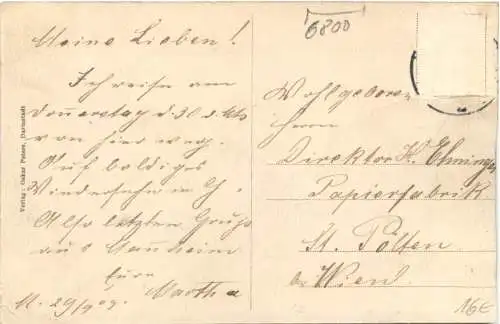 Meine Lieben!
Ich reise am
Donnerstag d. 30. d. Mts
von hier weg.
Auf baldiges
Wiedersehn in
Also letzten Gruß
aus Mannheim
Eure
Martha
M. 29/9 09.
Verlag: Oskar Peters, Darmstadt
6800
Wohlgeboren
Herrn
Direktor K.
Papierfabrik
St. Pölten
b. Wien
16€